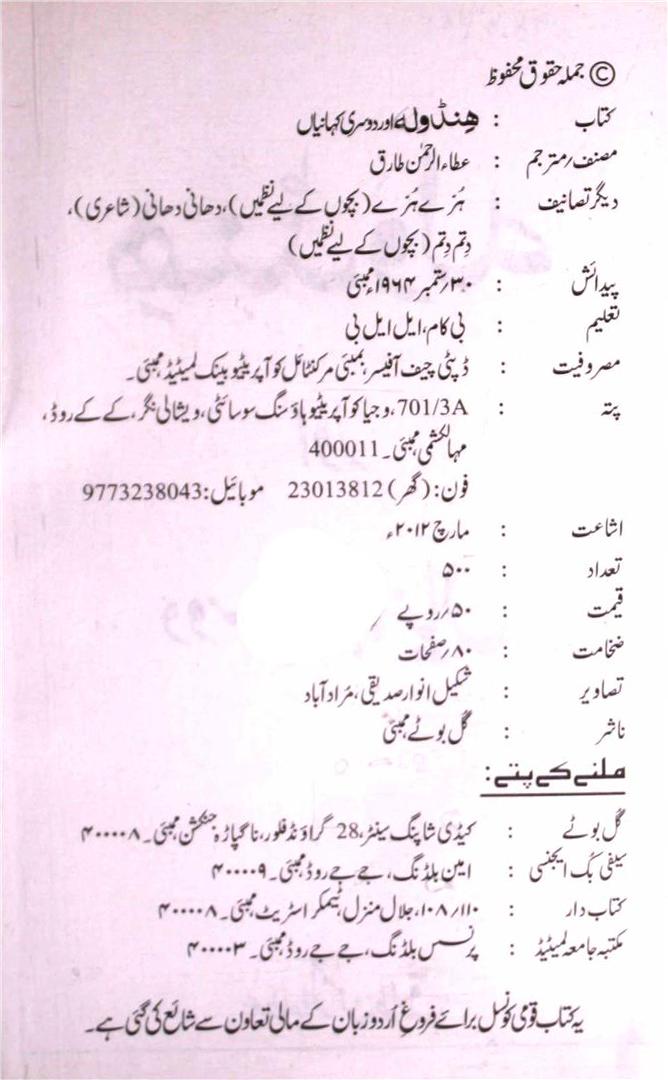 © جملہ حقوق محفوظ
کتاب : ھنڈولہ اور دوسری کہانیاں
مصنف / مترجم : عطاء الرحمٰن طارق
دیگر تصانیف : ہُرّے ہُرّے (بچوں کے لیے نظمیں)، دھانی دھانی (شاعری)،
دِتم دِتم (بچوں کے لیے نظمیں)
پیدائش : ۳۰؍ستمبر ۱۹۶۴ء ممبئی
تعلیم : بی کام، ایل ایل بی
مصروفیت : ڈپٹی چیف آفیسر، بمبئی مرکنٹائل کوآپریٹیو بینک لمیٹیڈ، ممبئی۔
پتہ : 701/3A، وجیا کوآپریٹیو ہاؤسنگ سوسائٹی، ویشالی نگر، کے کے روڈ،
مہالکشمی ممبئی۔ 400011
فون: (گھر) 23013812 موبائیل: 9773238043
اشاعت : مارچ ۲۰۱۲ء
تعداد : ۵۰۰
قیمت : ۵۰؍روپے
ضخامت : ۸۰؍صفحات
تصاویر : شکیل انوار صدیقی، مُراد آباد
ناشر : گل بوٹے، ممبئی
ملنے کے پتے:
گل بوٹے : کیڈی شاپنگ سینٹر، 28 گراؤنڈ فلور، ناگپاڑہ جنکشن ممبئی۔ ۴۰۰۰۰۸
سیفی بُک ایجنسی : امین بلڈنگ، جے جے روڈ، ممبئی۔ ۴۰۰۰۰۹
کتاب دار : ۱۰۸/۱۱۰، جلال منزل، ٹیمکر اسٹریٹ ممبئی۔ ۴۰۰۰۰۸
مکتبہ جامعہ لمیٹیڈ : پرنسس بلڈنگ، جے جے روڈ، ممبئی۔ ۴۰۰۰۰۳
یہ کتاب قومی کونسل برائے فروغِ اُردو زبان کے مالی تعاون سے شائع کی گئی ہے۔